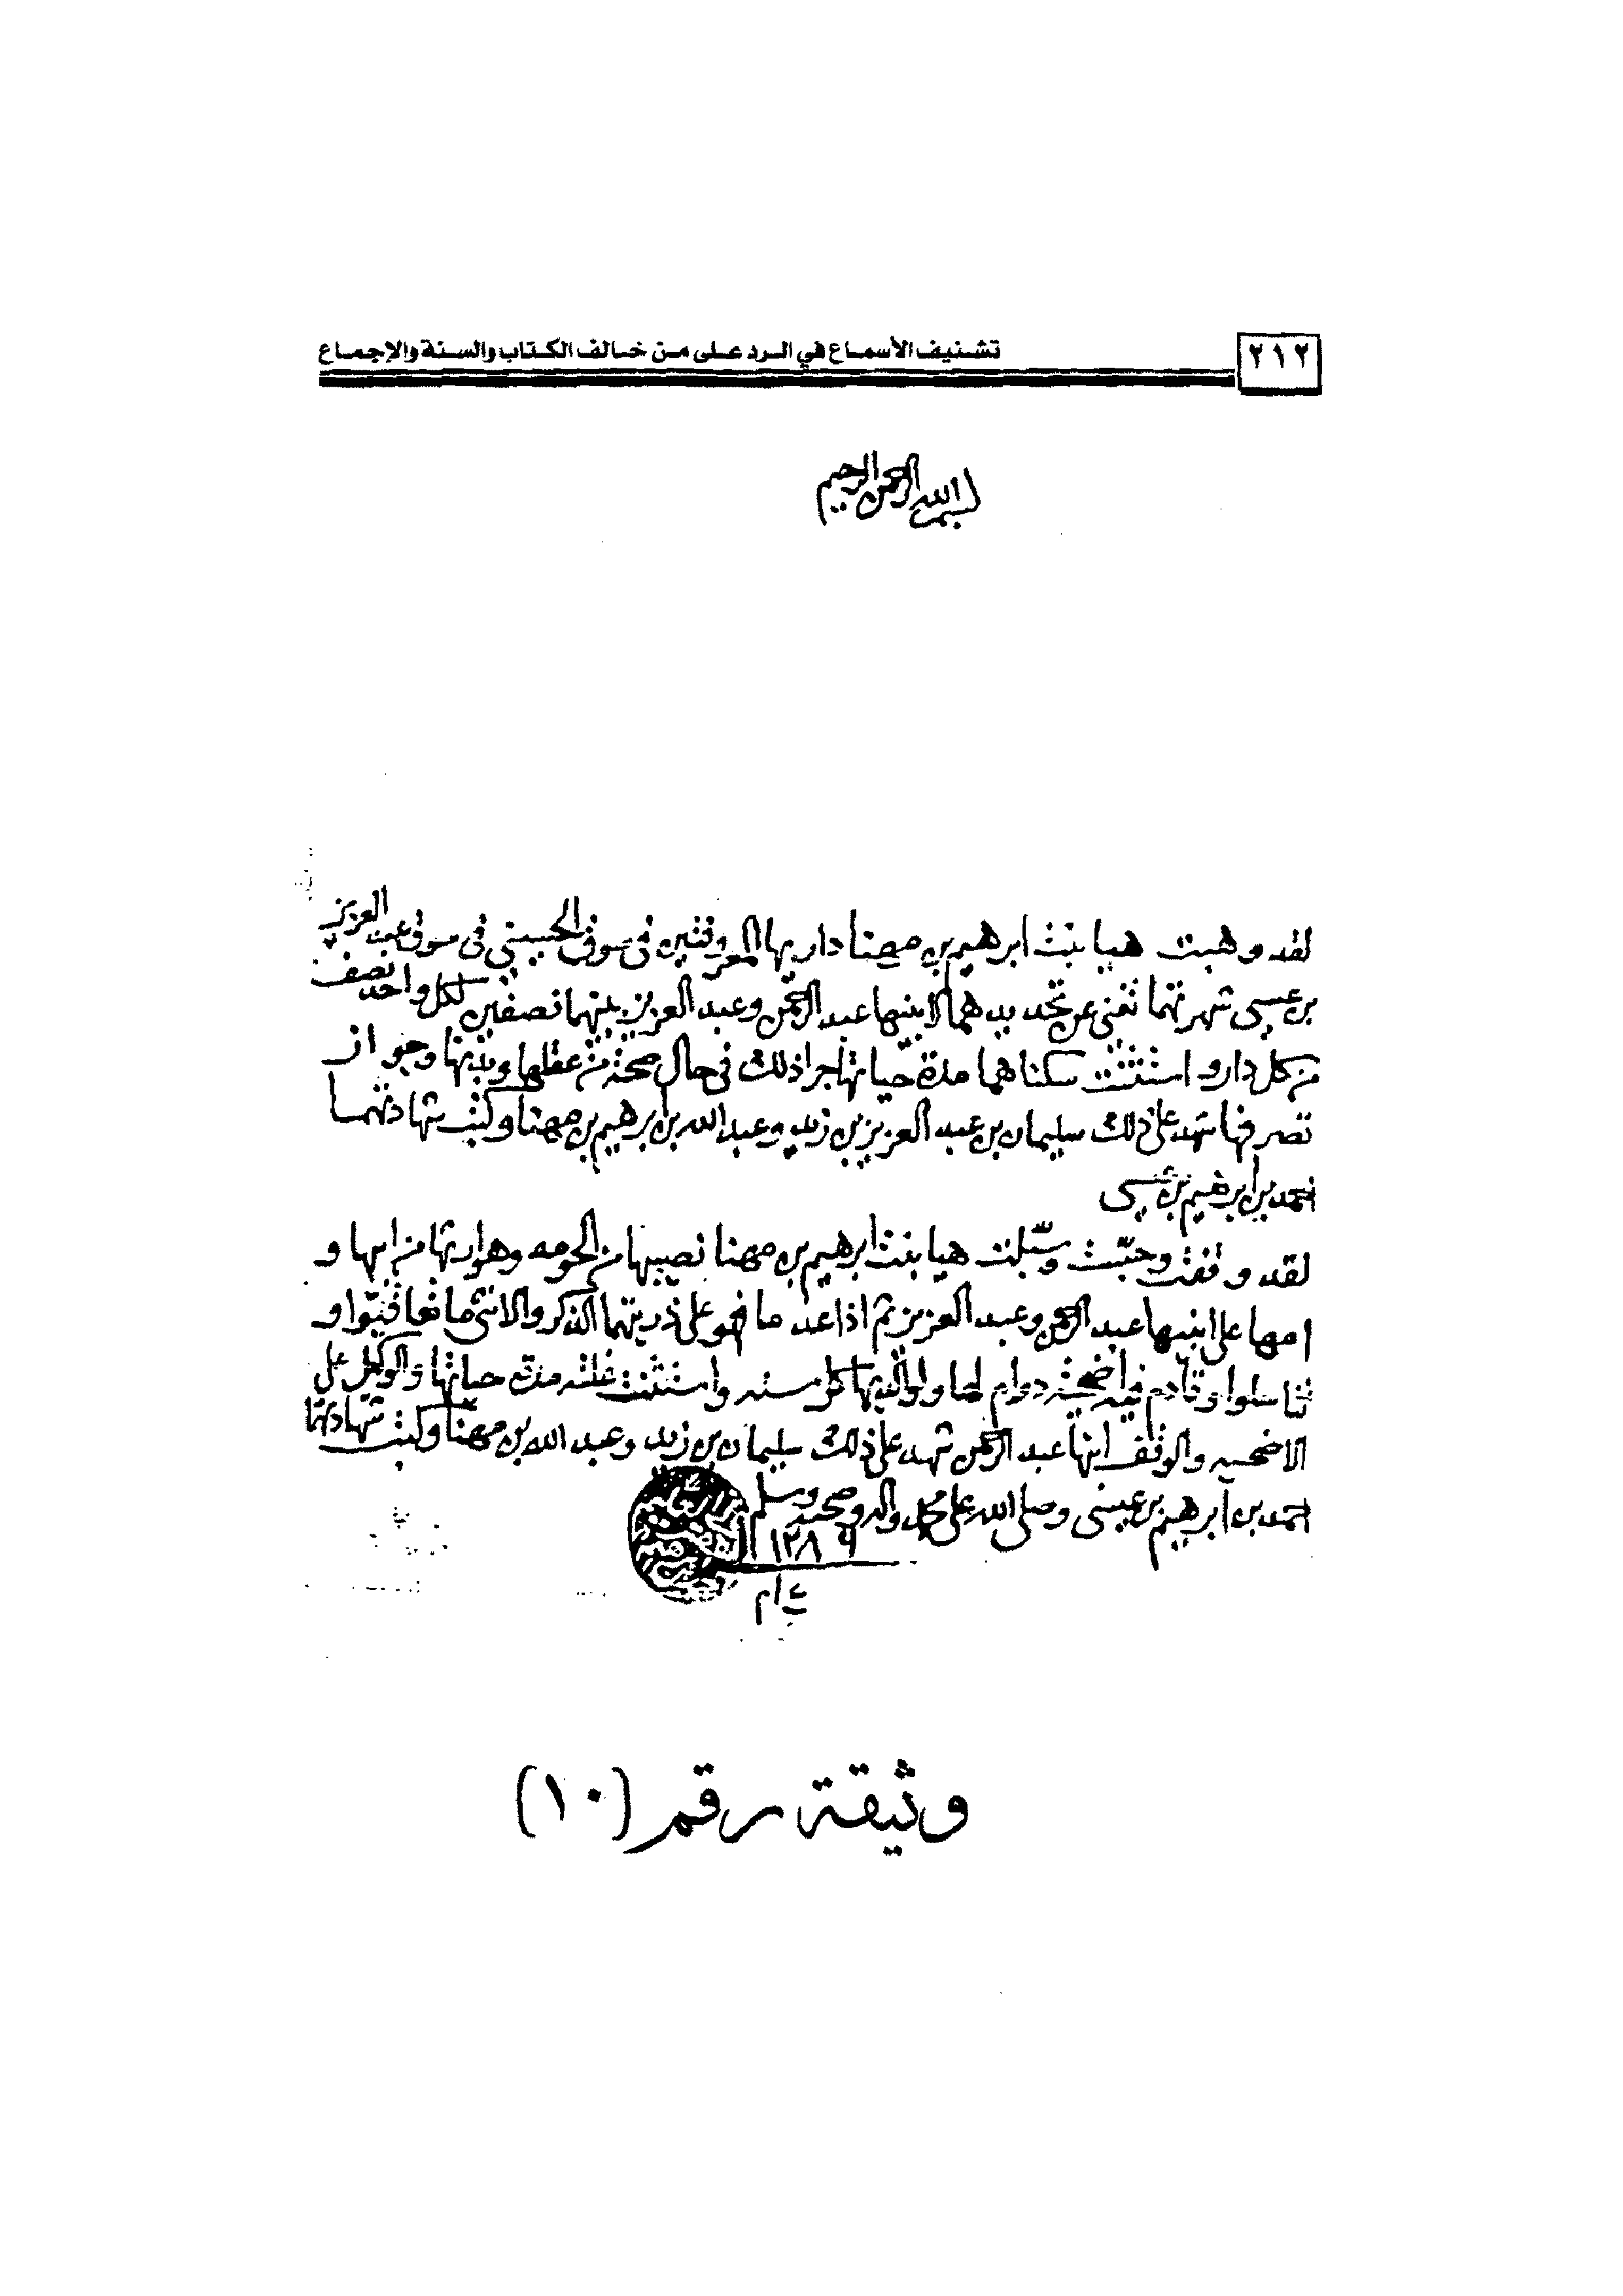 ٢١٢
تشنيف الأسماع في الرد على من خالف الكتاب والسنة والإجماع
بسم الله الرحمن الرحيم
لقد وهبت هيا بنت ابرهيم بن مهنا داريها المعروفتين في سوق الحسيني في سوق عبد العزيز
بن عيسى شهرتهما تغني عن تحديدهما لابنيها عبد الرحمن وعبد العزيز بينهما نصفين لكل واحد نصف
من كل دار و استثنت سكناهما مدة حياتها جرا ذلك في حال صحة من عقلها وبدنها وجواز
تصرفها شهد على ذلك سليمان بن عبد العزيز بن زيد وعبد الله بن ابرهيم بن مهنا وكتب شهادتهما
احمد بن ابرهيم بن عيسى
لقد وقفت وحبّست وسبّلت هيا بنت ابرهيم بن مهنا نصيبها من الحومه وهو ارثها من ابيها و
امها على ابنيها عبد الرحمن وعبد العزيز ثم اذا عدما فهو على ذريتهما الذكر والانثى ما تعاقبوا و
تناسلوا وقادم فيه اضحية دوام لها ولوالديها كل سنه واستثنت غلته مدة حياتها والوكيل على
الاضحيه والوقف ابنها عبد الرحمن شهد على ذلك سليمان بن زيد وعبد الله بن مهنا وكتب شهادتهما
احمد بن ابرهيم بن عيسى وصلى الله على محمد واله وصحبه وسلم
١٢٨٩
وثيقة رقم (١٠)